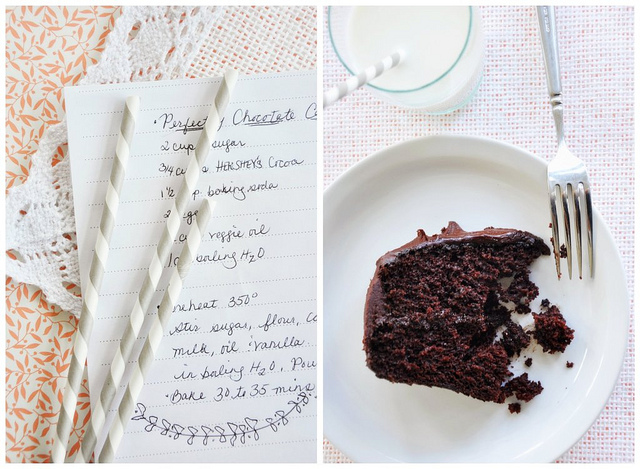 • Perfectly Chocolate C
2 cup sugar
3/4 cu s HERSHEY'S Cocoa
1 1/2 p baking soda
2 gg
cu veggie oil
1 c boiling H2O
• reheat 350°
stir sugar, flour, co
milk, oil, vanilla
in boiling H2O, Pou
• Bake 30 to 35 mins